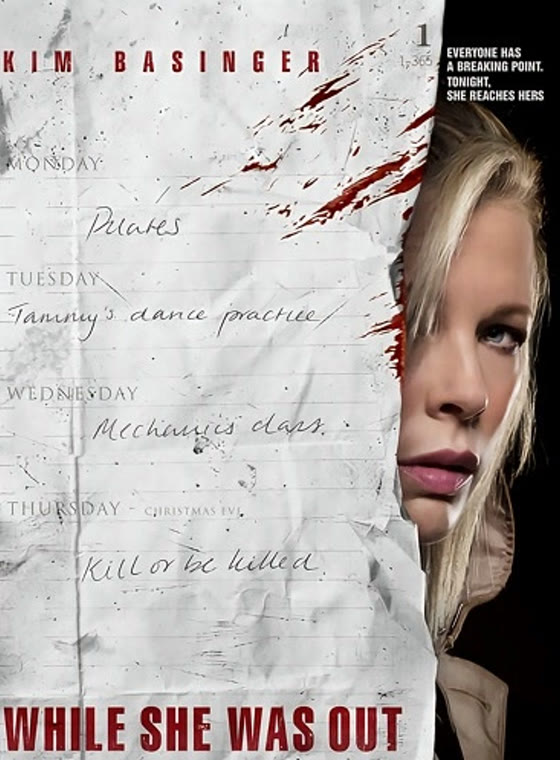 KIM BASINGER
1
1-365
EVERYONE HAS
A BREAKING POINT.
TONIGHT,
SHE REACHES HERS
MONDAY
Pilates
TUESDAY
Tammy's dance practice
WEDNESDAY
Mechanics class
THURSDAY - CHRISTMAS EVE
Kill or be killed
WHILE SHE WAS OUT